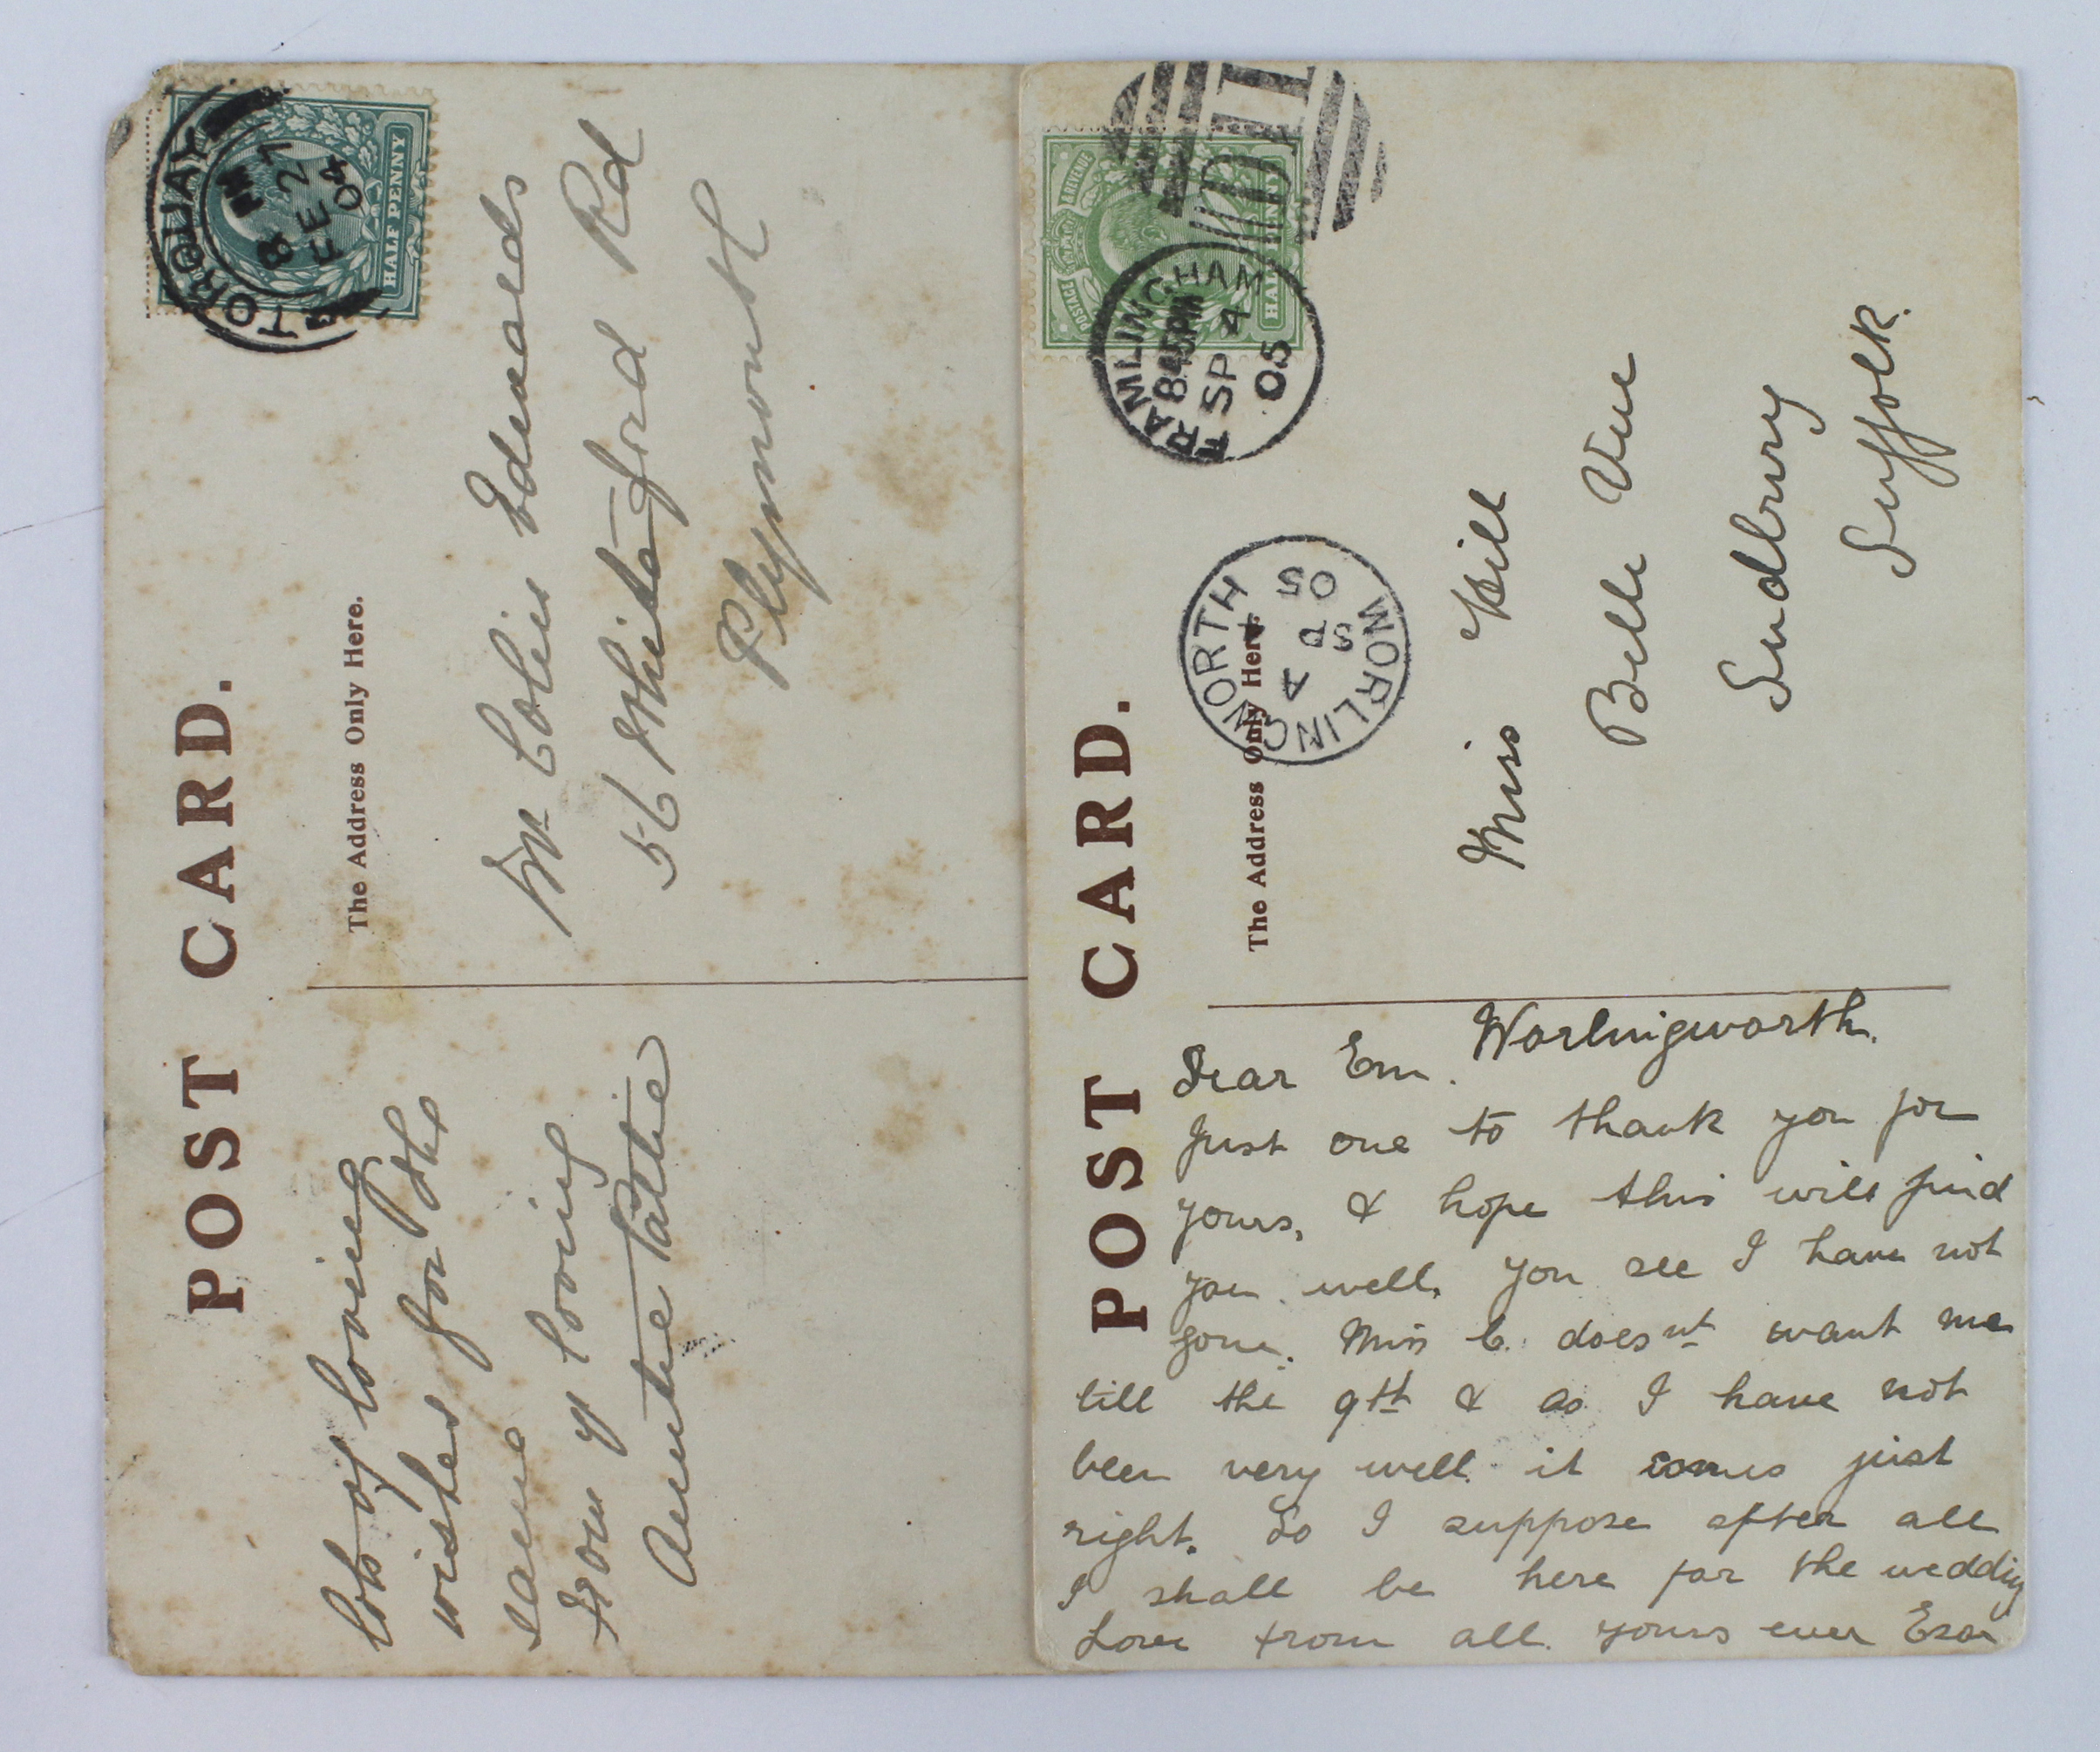 POST CARD.
The Address Only Here.
TORQUAY
8 PM
FE 27
04
HALF PENNY
Mr Colin Edwards
56 Whiteford Rd
Plymouth
lots of loving
wishes for the
same
from yr loving
Auntie Pattie
POST CARD.
The Address Only Here.
POSTAGE & REVENUE
HALF PENNY
FRAMLINGHAM
8.45PM
SP 4
05
D11
WORLINGWORTH
A
SP 4
05
Miss Hill
Belle Vue
Sudbury
Suffolk.
Worlingworth.
Dear Em.
Just one to thank you for
yours, & hope this will find
you well. You see I have not
gone. Miss C. doesnt want me
till the 9th & as I have not
been very well. it comes just
right. So I suppose after all
I shall be here for the wedding
Love from all. yours ever